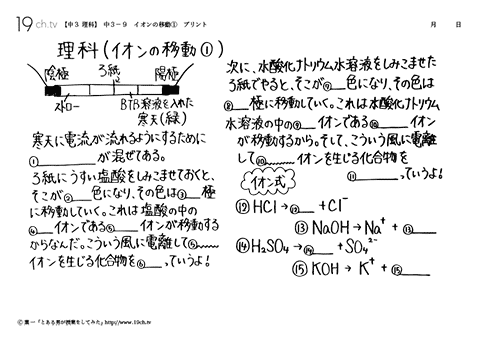 19ch.tv 【中3 理科】 中3－9 イオンの移動① プリント 月 日
理科(イオンの移動①)
陰極 ろ紙 陽極
ストロー
BTB溶液を入れた
寒天(緑)
寒天に電流が流れるようにするために
① が混ぜてある。
ろ紙にうすい塩酸をしみこませておくと、
そこが② 色になり、その色は③ 極
に移動していく。これは塩酸の中の
④ イオンである⑤ イオンが移動する
からなんだ。こういう風に電離して⑤
イオンを生じる化合物を⑥ っていうよ!
次に、水酸化ナトリウム水溶液をしみこませた
ろ紙でやると、そこが⑦ 色になり、その色は
⑧ 極に移動していく。これは水酸化ナトリウム
水溶液の中の⑨ イオンである⑩ イオン
が移動するから。そして、こういう風に電離
して⑩ イオンを生じる化合物を
⑪ っていうよ!
イオン式
⑫ HCl → ⑫ + Cl⁻
⑬ NaOH → Na⁺ + ⑬
⑭ H₂SO₄ → ⑭ + SO₄²⁻
⑮ KOH → K⁺ + ⑮
Ⓒ葉一「とある男が授業をしてみた」http://www.19ch.tv